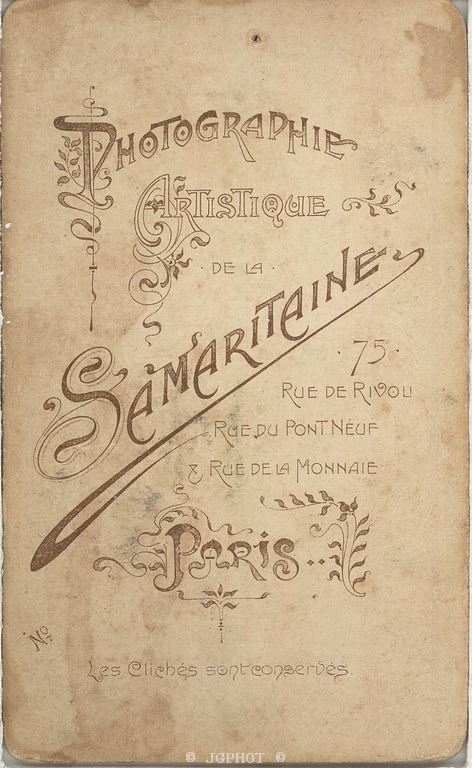 PHOTOGRAPHIE
ARTISTIQUE
· DE LA ·
SAMARITAINE
· 75 ·
RUE DE RIVOLI
RUE DU PONT NEUF
& RUE DE LA MONNAIE
PARIS..
No.
Les Clichés sont conservés.
© JGPHOT ©